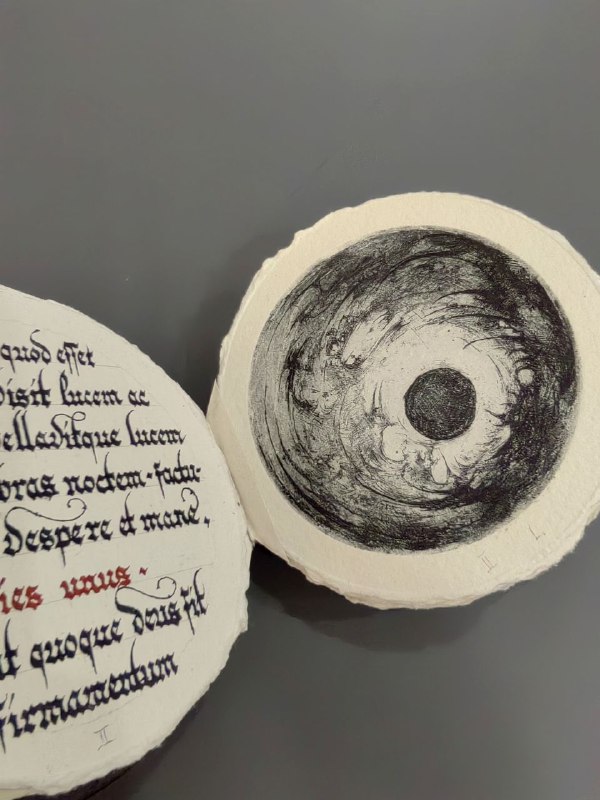 quod esset
divisit lucem ac
appelladitque lucem
bras noctem · factu-
despere et mane,
ies unus ·
it quoque deus fit
firmamentum
II
II L